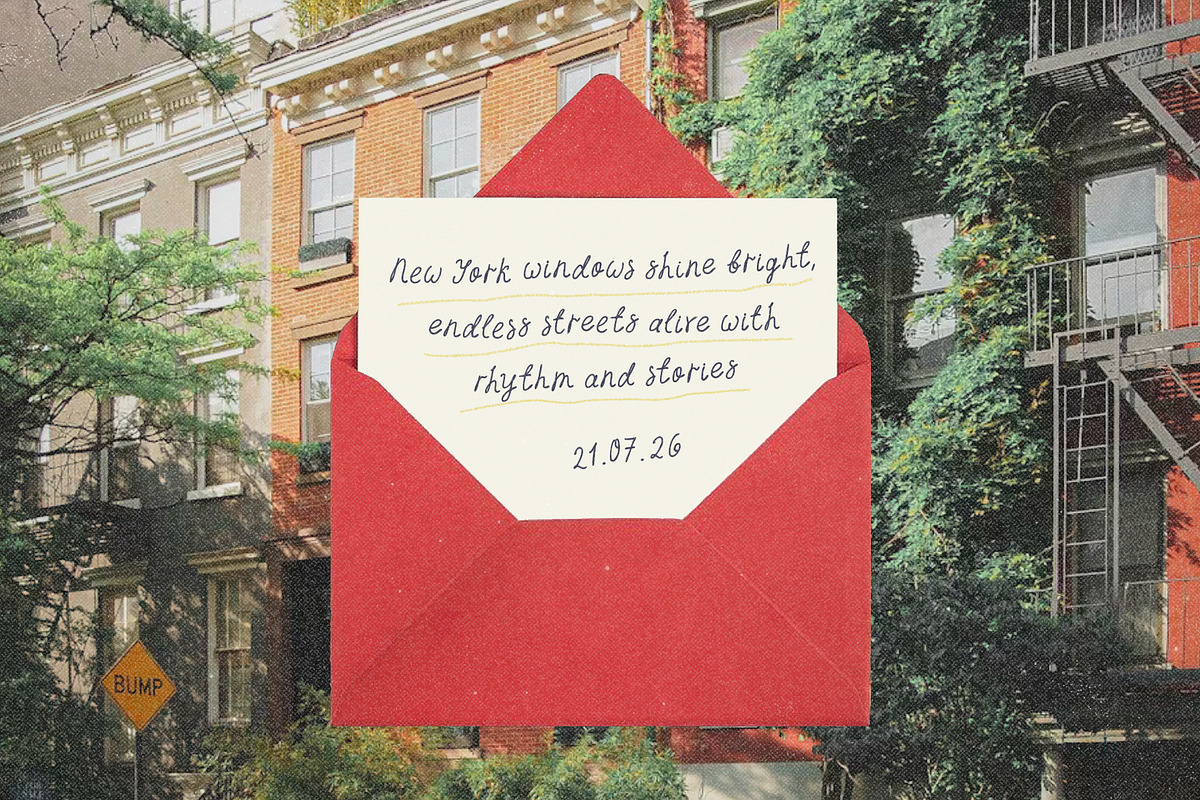 New York windows shine bright,
endless streets alive with
rhythm and stories
21.07.26
BUMP